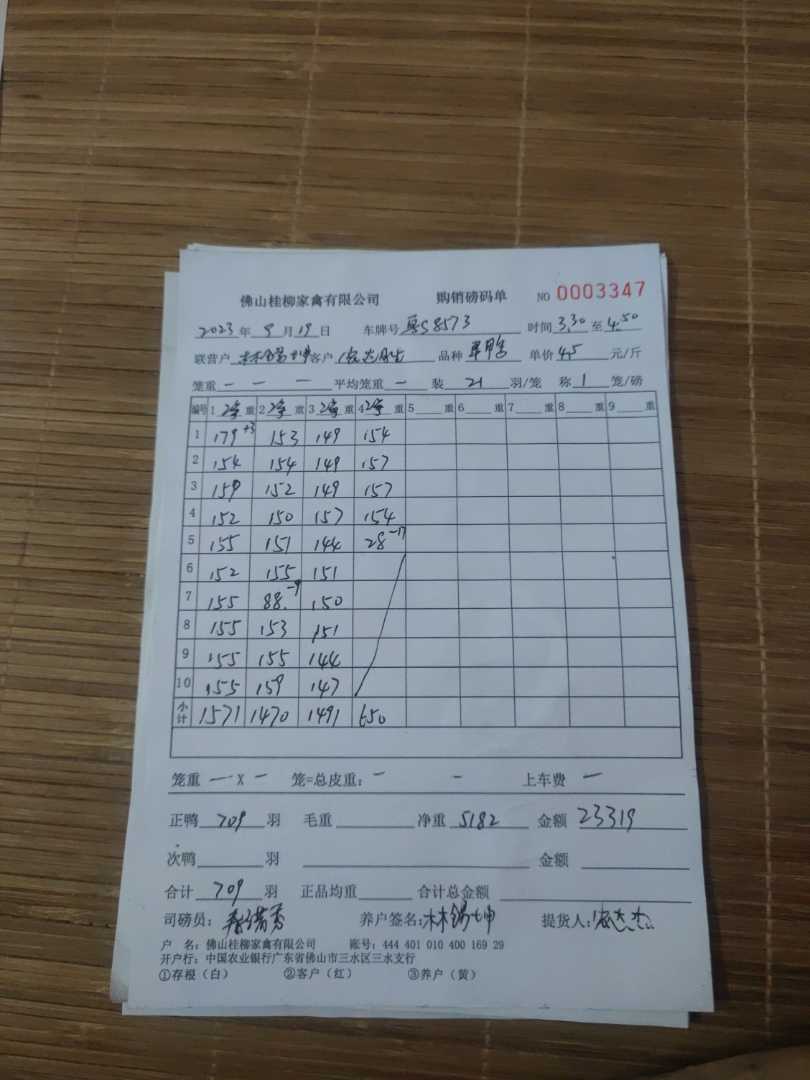 佛山桂柳家禽有限公司 购销磅码单 NO 0003347
2023年9月19日 车牌号 S8573 时间 3.30 至 4.50
联营户 林锡坤 客户 品种 单价 4.5 元/斤
笼重 — — — 平均笼重 — 装 21 羽/笼 称 1 笼/磅
编号 1 重 2 重 3 重 4 重 5 重 6 重 7 重 8 重 9 重
1 179 +3 153 149 154
2 154 154 149 157
3 159 152 149 157
4 152 150 157 154
5 155 151 144 28 -17
6 152 155 151
7 155 88. -9 150
8 155 153 151
9 155 155 144
10 155 159 147
小计 1571 1470 1491 650
笼重 — X — 笼=总皮重: — — 上车费 —
正鸭 709 羽 毛重 净重 5182 金额 23319
次鸭 羽 金额
合计 709 羽 正品均重 合计总金额
司磅员: 养户签名: 林锡坤 提货人:
户 名: 佛山桂柳家禽有限公司 账号: 444 401 010 400 169 29
开户行: 中国农业银行广东省佛山市三水区三水支行
①存根（白） ②客户（红） ③养户（黄）